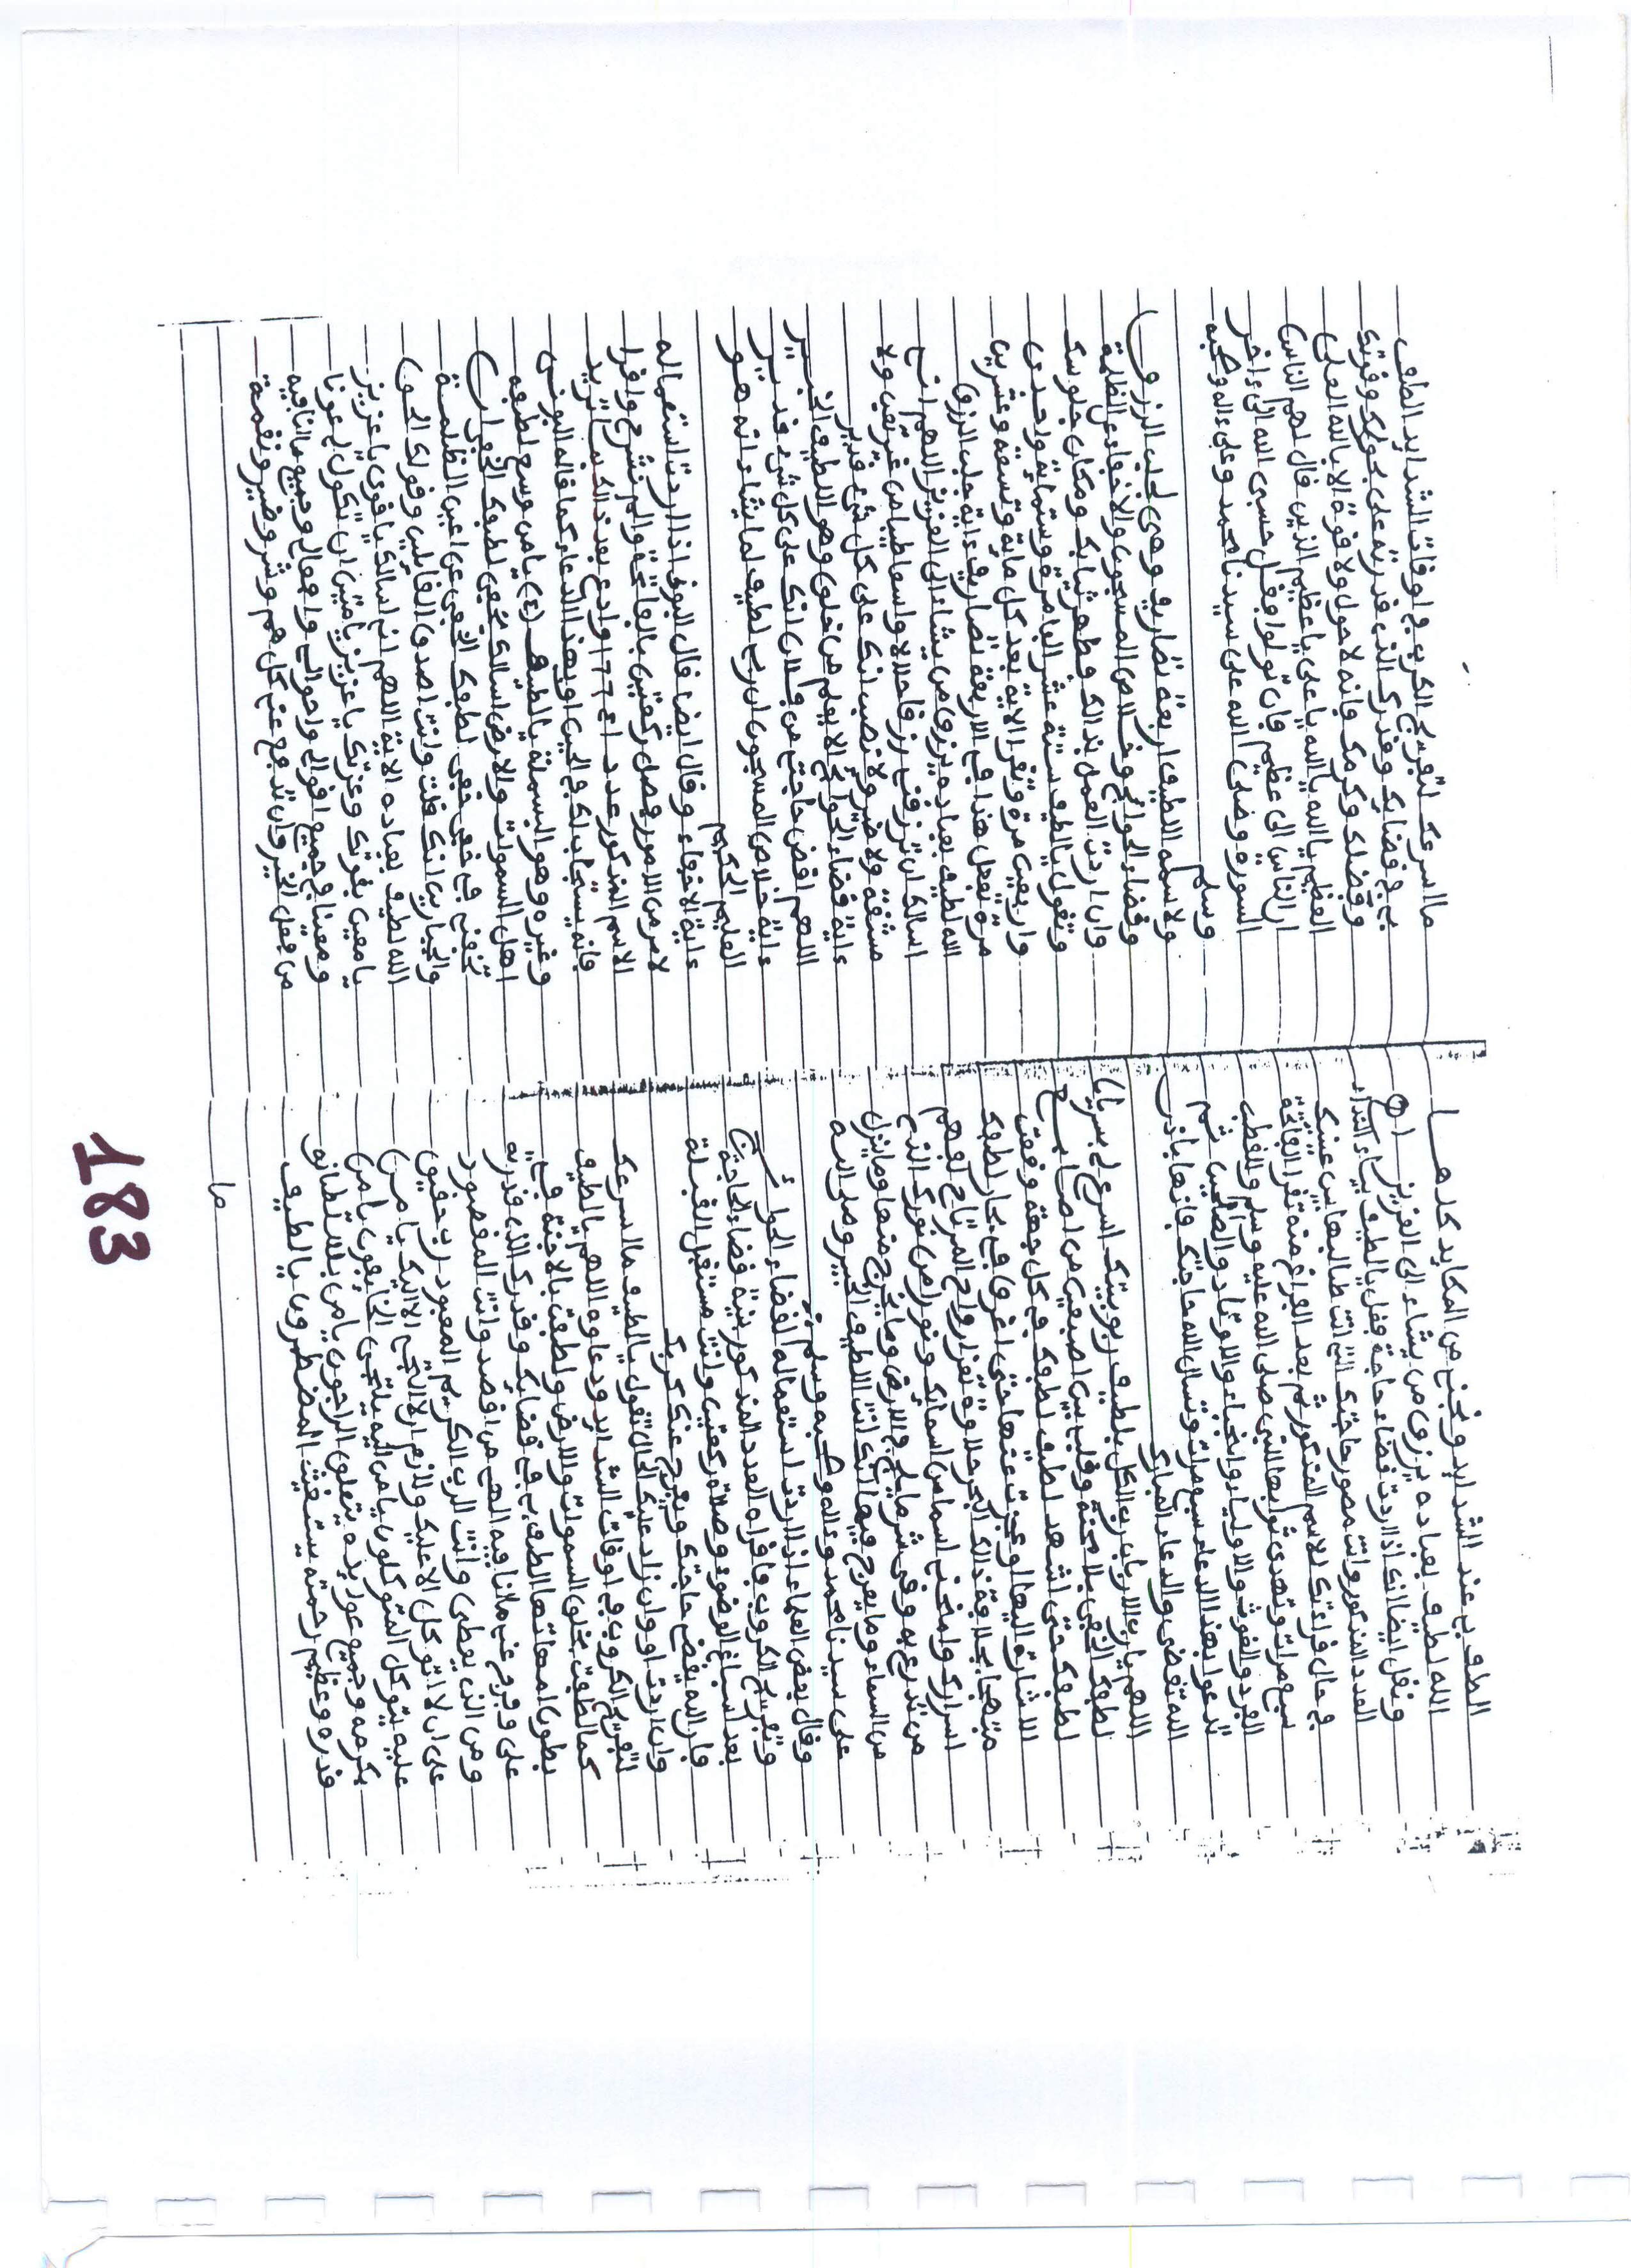 الطف بي عند الشدايد ونجني من المكايد كلها
الله لطيف بعباده يرزق من يشاء الى العزيز
ونقل ايضا انك اذا اردت قضاء حاجة فقل يالطيف بياء النداء
العدد المذكور وانت مصور حاجتك التي انت طالبها بين عينيك
في حال قراءتك للاسم المذكور ثم بعد الفراغ منه تقرأ الفاتحة
سبع مرات وتهدي ثوابها للنبي صلى الله عليه وسلم والقطب
الفرد والغوث والاوليا والنجباء والاوتاد والصالحين ثم
تدعوا بهذا الدعاء سبع مرات وتسأل الله حاجتك فانها باذن
الله تقضى والدعاء المبارك
اللهم يارب الارباب رب الكل بلطيف ربوبيتك اسرع لي بسريان
لطفك الخفي بلا محنة وقلبي بين اصبعين من اصابع
لطفك حتى اشهد لطيف لطفك في كل جهة وفقت
الاشارة اليها لوجدت عنها حتى اغرق في بحار لطفك
متهجا بحلاوة ذالك البحر حلاوة تفز ارواح المرتاح لفهم
اسرارك وامنحني اسما من اسمائك ونورا من نورك الذي
من تدرع به وقي شر مايلج في الارض وما يخرج منها وما ينزل
من السماء وما يعرج فيها انك انت اللطيف الخبير وصلى الله
على سيدنا محمد وءاله وصحبه وسلم
وقال بعض العلماء اذا اردت استعماله لقضاء الحوائج
وتفريج الكروب فاقراه العدد المذكور بنية قضاء الحاجة
بعد اسباغ الوضوء وصلاة ركعتين وانت مستقبل القبلة
فان الله يقضي حاجتك ويفرج عنك كربك
وان اردت او وان زاد عليك الحال تقول يالطيف ما اسرعك
لتفريج الكروب في اوقات الشدايد ودعاوه اللهم يالطيف
كما لطفت بخلق السموات والارض ولطفت بالاجنة في
بطون امهاتها الطف بي في قضائك وقدرك الذي قدرته
على وفرج عني ما انا فيه الهي من اقصد وانت المقصود
ومن الذي يعطي وانت الرب الكريم المعبود رب حقيق
على ان لا اتوكل الا عليك ولازم ان لا التجي الا اليك يا من
عليه يتوكل المتوكلون يامن اليه يلتجي الخايفون يامن
بكرمه وجميع عوايده يتعلق الراجون يامن بسلطانه
قدره وعظيم رحمته يستغيث المضطرون يالطيف
ما
ما اسرعك لتفريج الكرب في اوقات الشدايد الطف
بي في قضايك وقدرك الذي قدرته علي بحولك وقوتك
وفضلك وكرمك فانه لا حول ولا قوة الا بالله العلي
العظيم يا الله يا الله يا علي يا عظيم الذين قال لهم الناس
ان الناس الى عظيم فان تولوا فقل حسبي الله الى ءاخر
السورة وصلى الله على سيدنا محمد وعلى ءاله وصحبه
وسلم
ولاسمه اللطيف اربعة تصاريف وهي لجلب الرزق
وقضاء الحوائج وخلاص المسجون والاخفاء عن الظلمة
وان اردت العمل بذالك فطهر ثيابك ومكان جلوسك
وتقول يالطيف ستة عشر الف مرة وستماية واحدى
واربعين مرة وتقرا الاية بعد كل ماية وتسعة وعشرين
مرة تفعل هذا في الاربعة تصاريف ءاية جلب الرزق
الله لطيف بعباده يرزق من يشاء الى العزيز اللهم اني
اسالك ان ترزقني رزقا حلالا واسعا طيبا من غير تعب ولا
مشقة ولا ضير ولا نصب انك على كل شيء قدير
ءاية قضاء الحوائج الا يعلم من خلق وهو اللطيف الخبير
اللهم اقض حاجتي من فلان انك على كل شيء قدير
ءاية خلاص المسجون ان ربي لطيف لما يشاء انه هو
العليم الحكيم
ءاية الاخفاء وقال ايضا قال البوني اذا اردت استعماله
لامر من الامور فصل ركعتين بالفاتحة والم نشرح واقرا
الاسم المذكور عدد اعـ 177 وادع بعد الكم اتريد
فانه يستجاب لك في الحين او بهذا الدعاء كما قاله البوني
وغيره وهو البسملة يالطيف (٤) يامن وسع لطفه
اهل السموات والارض اسئلك بخفي لطفك الخفي ان
تخفني في خفي خفي لطفك الخفي عن اعين الظلمة
والجبارين انك قلت وانت اصدق القايلين وقولك الحق
الله لطيف بعباده الاية اللهم اني اسالك يا قوي يا عزيز
يا معين بقوتك وعزتك يا عزيز يا متين ان تكون لي عونا
ومعينا في جميع اقوالي واحوالي وافعالي وجميع ما انا فيه
من فعل الخير وان تدفع عني كل هم وشر وضير ونقمة
183